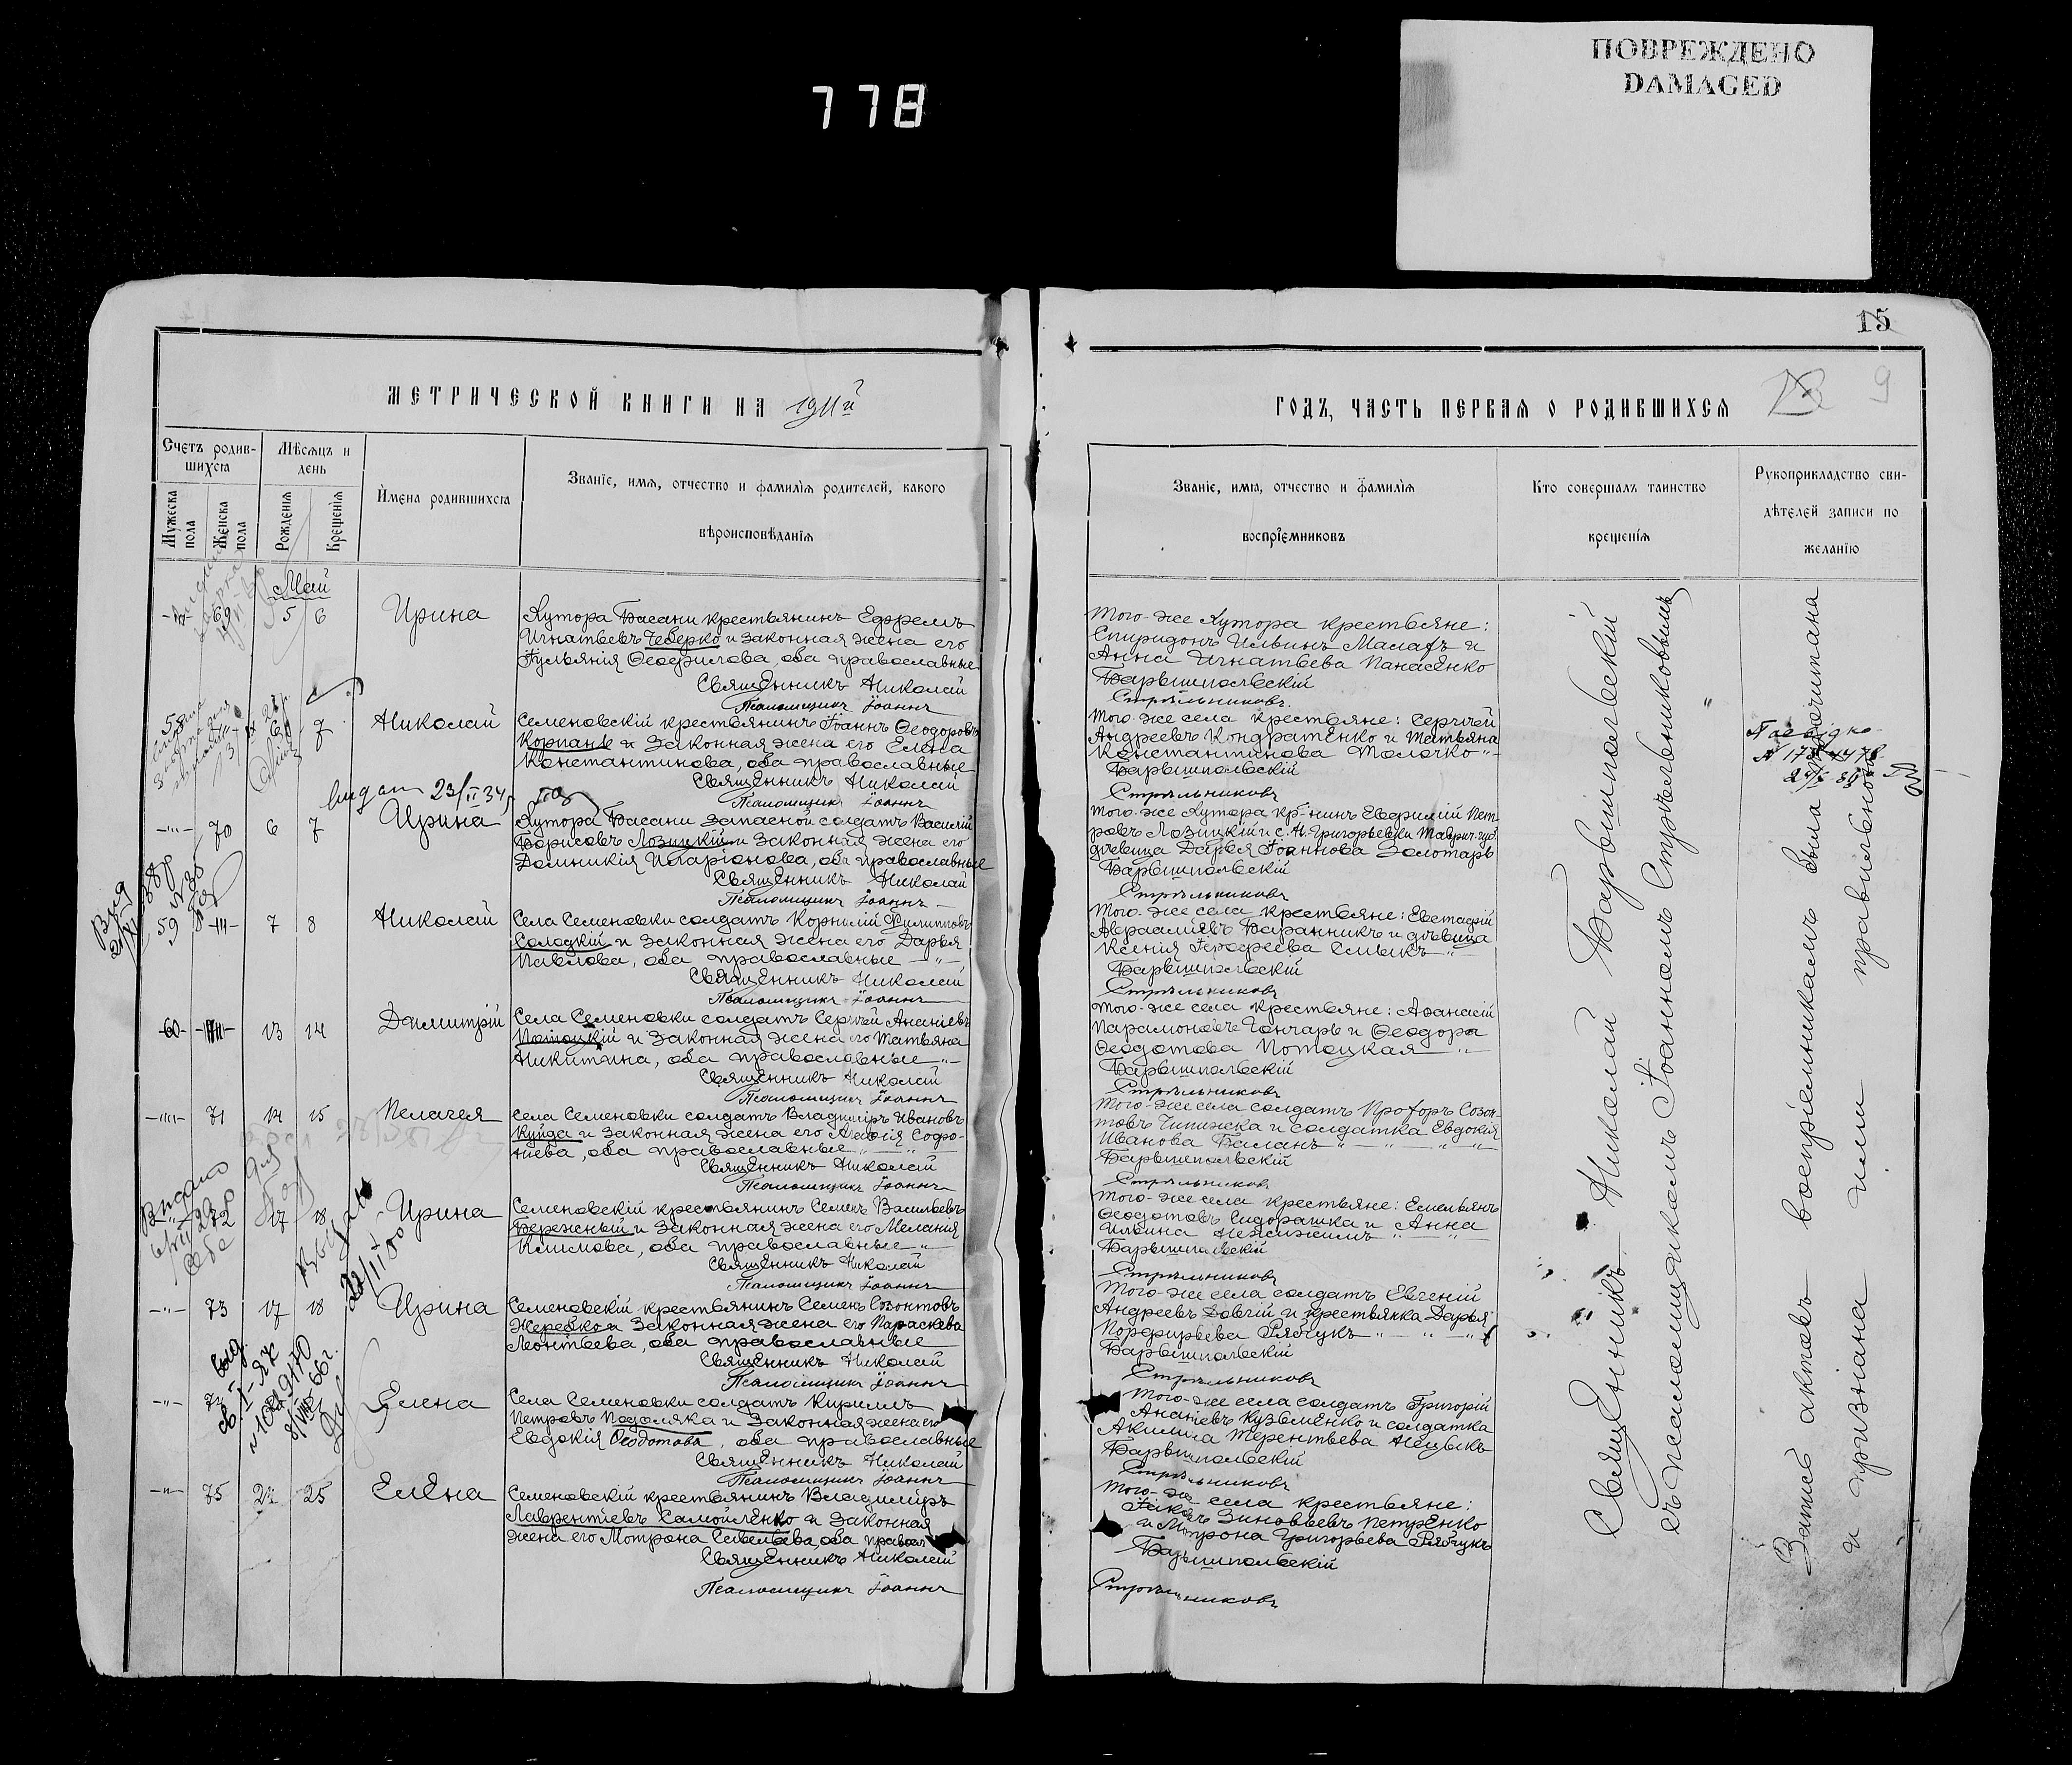 778
ПОВРЕЖДЕНО
DAMAGED
15
9
МЕТРИЧЕСКОЙ КНИГИ НА 1911й
Счетъ родив-
шихся
Мѣсяцъ и
день
Мужеска
пола
Женска
пола
Рожденія
Крещенія
Имена родившихся
Званіе, имя, отчество и фамилія родителей, какого
вѣроисповѣданія
Май
69 5 6 Ирина
Хутора Басани крестьянинъ Ефремъ
Игнатьевъ Чеверко и законная жена его
Іульянія Ѳеофилова, оба православные
Священникъ Николай
Псаломщикъ Іоаннъ
58 6 7 Николай
Семеновскій крестьянинъ Іоаннъ Ѳеодоровъ
Корпань и законная жена его Елена
Константинова, оба православные
Священникъ Николай
Псаломщикъ Іоаннъ
видан 23/II 34
-"- 70 6 7 Ирина
Хутора Басани запасной солдатъ Василій
Борисовъ Лозицкій и законная жена его
Домникія Иларіонова, оба православные
Священникъ Николай
Псаломщикъ Іоаннъ
59 7 8 Николай
Села Семеновки солдатъ Корнилій Филипповъ
Солодкій и законная жена его Дарья
Павлова, оба православные -"-
Священникъ Николай
Псаломщикъ Іоаннъ
60 13 14 Димитрій
Села Семеновки солдатъ Сергѣй Ананіевъ
Потоцкій и законная жена его Татьяна
Никитина, оба православные -"-
Священникъ Николай
Псаломщикъ Іоаннъ
-"- 71 14 15 Пелагея
Села Семеновки солдатъ Владиміръ Ивановъ
Куйда и законная жена его Агафія Софро-
ніева, оба православные
Священникъ Николай
Псаломщикъ Іоаннъ
72 17 18 Ирина
Семеновскій крестьянинъ Семенъ Васильевъ
Бережный и законная жена его Меланія
Климова, оба православные -"-
Священникъ Николай
Псаломщикъ Іоаннъ
-"- 73 17 18 Ирина
Семеновскій крестьянинъ Семенъ Созонтовъ
Жеребко и законная жена его Параскева
Леонтьева, оба православные
Священникъ Николай
Псаломщикъ Іоаннъ
-"- Елена
Села Семеновки солдатъ Кириллъ
Петровъ Подоляка и законная жена его
Евдокія Ѳеодотова, оба православные
Священникъ Николай
Псаломщикъ Іоаннъ
-"- 75 25 Елена
Семеновскій крестьянинъ Владиміръ
Лаврентіевъ Самойленко и законная
жена его Мотрона Савельева, оба правосл
Священникъ Николай
Псаломщикъ Іоаннъ
ГОДЪ, ЧАСТЬ ПЕРВАЯ О РОДИВШИХСЯ
Званіе, имя, отчество и фамилія
воспріемниковъ
Кто совершалъ таинство
крещенія
Рукоприкладство сви-
дѣтелей записи по
желанію
Того-же хутора крестьяне:
Спиридонъ Ильинъ Малахъ и
Анна Игнатьева Панасенко
Барышпольскій
Стрѣльниковъ
Того-же села крестьяне: Сергѣй
Андреевъ Кондратенко и Татьяна
Константинова Толочко -"-
Барышпольскій
Стрѣльниковъ
Того-же хутора кр-нинъ Евфимій Пет
ровъ Лозицкій и с. Н. Григорьевки Таврич. губ.
дѣвица Дарья Іоаннова Золотарь
Барышпольскій
Стрѣльниковъ
Того-же села крестьяне: Евстафій
Авраамiевъ Баранникъ и дѣвица
Ксенія
Барышпольскій
Стрѣльниковъ
Того-же села крестьяне: Аѳанасій
Парамоновъ Гончаръ и Ѳеодора
Ѳеодотова Потоцкая -"-
Барышпольскій
Стрѣльниковъ
Того-же села солдатъ Прохоръ Созон-
товъ Чипижка и солдатка Евдокія
Иванова Баланъ
Барышпольскій
Стрѣльниковъ
Того-же села крестьяне: Емельянъ
Ѳеодотовъ Сидорашка и Анна
Ильина
Барышпольскій
Стрѣльниковъ
Того-же села солдатъ Евгеній
Андреевъ Довгій и крестьянка Дарья
Порфирьева Рябчукъ
Барышпольскій
Стрѣльниковъ
Того-же села солдатъ Григорій
Ананіевъ Кузьменко и солдатка
Акилина Терентьева
Барышпольскій
Стрѣльниковъ
Того-же села крестьяне:
Іаковъ Зиновьевъ Петренко
и Мотрона Григорьева Рябчукъ
Барышпольскій
Стрѣльниковъ
Священникъ Николай Барышпольскій
съ псаломщикомъ Іоанномъ Стрѣльниковымъ
Запись актовъ воспріемникамъ была прочитана
и признана ими правильною